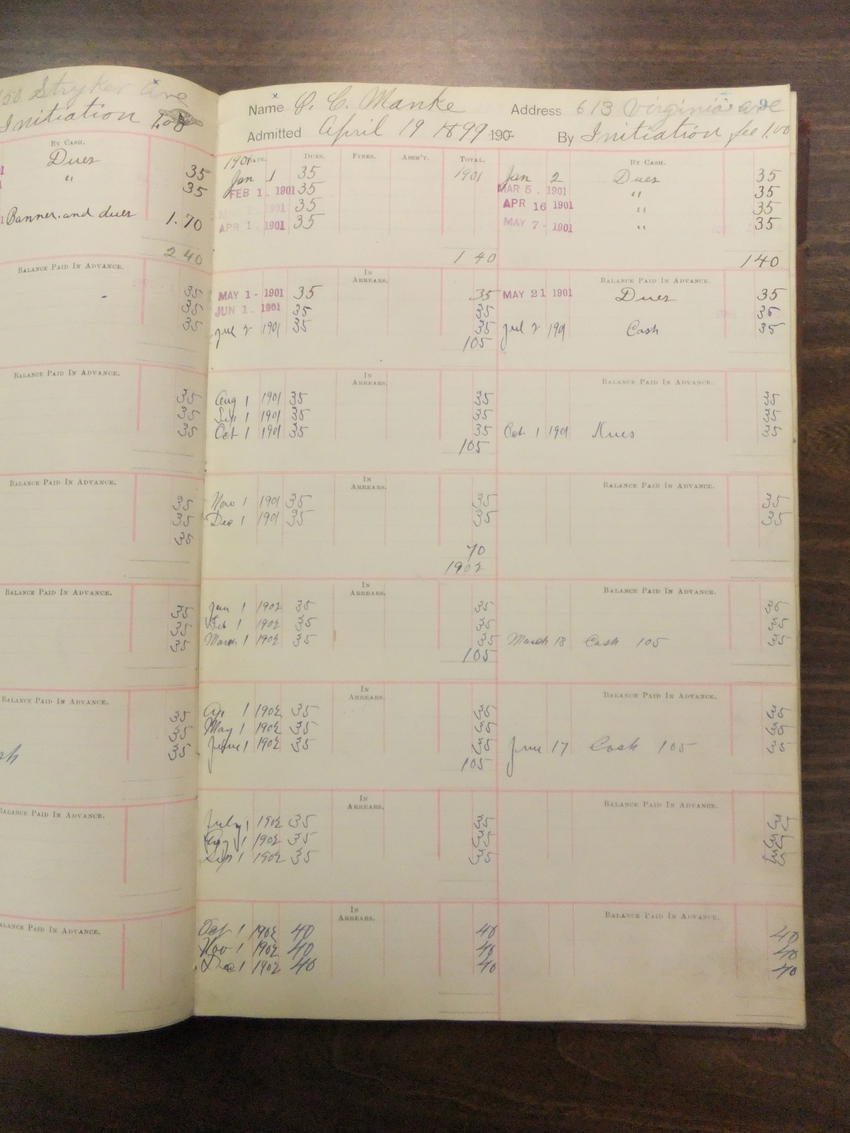 Stryker Ave
Initiation 1.00
By Cash.
Dues 35
" 35
Banner and dues 1.70
2 40
Balance Paid In Advance.
35
35
35
Balance Paid In Advance.
35
35
35
Balance Paid In Advance.
35
35
35
Balance Paid In Advance.
35
35
35
Balance Paid In Advance.
35
35
35
Balance Paid In Advance.
Balance Paid In Advance.
Name O. C. Manke Address 613 Virginia ave
Admitted April 19 1899 190- By Initiation fee 1.00
1901 Date. Dues. Fines. Assm't. Total. By Cash.
Jan 1 35 1901 Jan 2 Dues 35
FEB 1 . 1901 35 MAR 5 . 1901 " 35
35 APR 16 1901 " 35
APR 1 . 1901 35 MAY 7 - 1901 " 35
1 40 140
In Arrears. Balance Paid In Advance.
MAY 1 - 1901 35 35 MAY 21 1901 Dues 35
JUN 1 . 1901 35 35 35
Jul 2 1901 35 35 Jul 2 1901 Cash 35
105
In Arrears. Balance Paid In Advance.
Aug 1 1901 35 35 35
Sep 1 1901 35 35 35
Oct 1 1901 35 35 Oct 1 1901 Dues 35
105
In Arrears. Balance Paid In Advance.
Nov 1 1901 35 35 35
Dec 1 1901 35 35 35
70
1902
In Arrears. Balance Paid In Advance.
Jan 1 1902 35 35 35
Feb 1 1902 35 35 35
March 1 1902 35 35 March 18 Cash 105 35
105
In Arrears. Balance Paid In Advance.
Ap 1 1902 35 35 35
May 1 1902 35 35 35
June 1 1902 35 35 June 17 Cash 105 35
105
In Arrears. Balance Paid In Advance.
July 1 1902 35 35 35
Aug 1 1902 35 35 35
Sep 1 1902 35 35 35
In Arrears. Balance Paid In Advance.
Oct 1 1902 40 40 40
Nov 1 1902 40 40 40
Dec 1 1902 40 40 40